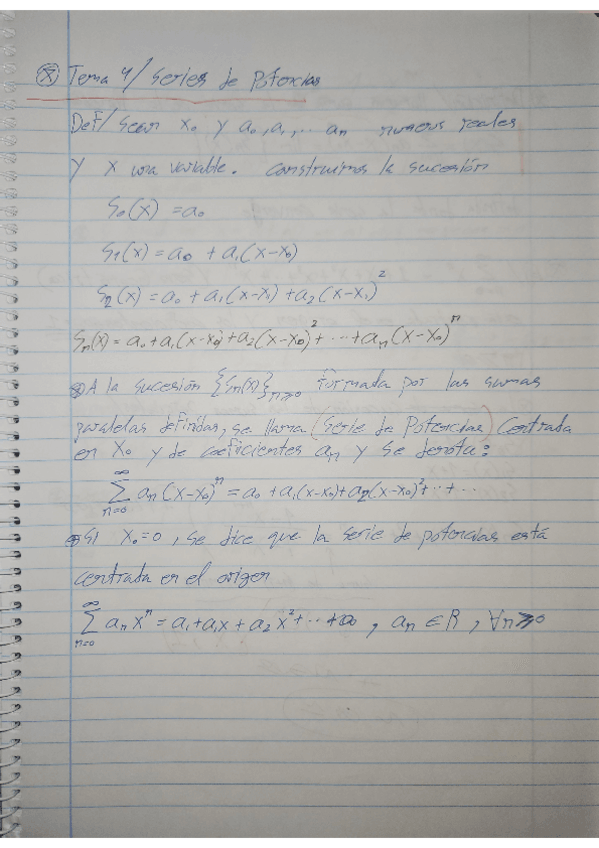 Ⓧ Tema 4/ Series de Potencias
Def/ Sean x₀ y a₀, a₁, ... aₙ numeros reales
y x una variable. construimos la sucesión
S₀(x) = a₀
S₁(x) = a₀ + a₁(x-x₀)
S₂(x) = a₀ + a₁(x-x₀) + a₂(x-x₀)²
Sₙ(x) = a₀ + a₁(x-x₀) + a₂(x-x₀)² + ... + aₙ(x-x₀)ⁿ
⊛ A la sucesión {Sₙ(x)}ₙ≥₀ formada por las sumas
definidas, se llama (Serie de Potencias) Centrada
en X₀ y de coeficientes aₙ y se denota:
∞∑n=0 aₙ(x-x₀)ⁿ = a₀ + a₁(x-x₀) + a₂(x-x₀)² + ...
⊛ Si x₀=0, se dice que la serie de potencias está
centrada en el origen
∞∑n=0 aₙxⁿ = a₁ + a₁x + a₂x² + ... + ∞, aₙ ∈ R, ∀n≥0